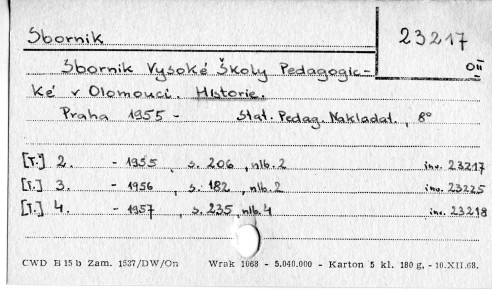 Sborník
23217
OII
Sborník Vysoké Školy Pedagogic-
ké v Olomouci. Historie.
Praha 1955 - Stát. Pedag. Nakladat., 8°
[T.] 2. - 1955, s. 206, nlb. 2 inv. 23217
[T.] 3. - 1956, s. 182, nlb. 2 inv. 23225
[T.] 4. - 1957, s. 235, nlb. 4 inv. 23218
CWD B 15 b Zam. 1537/DW/On Wrak 1068 - 5.040.000 - Karton 5 kl. 180 g, - 10.XII.68.